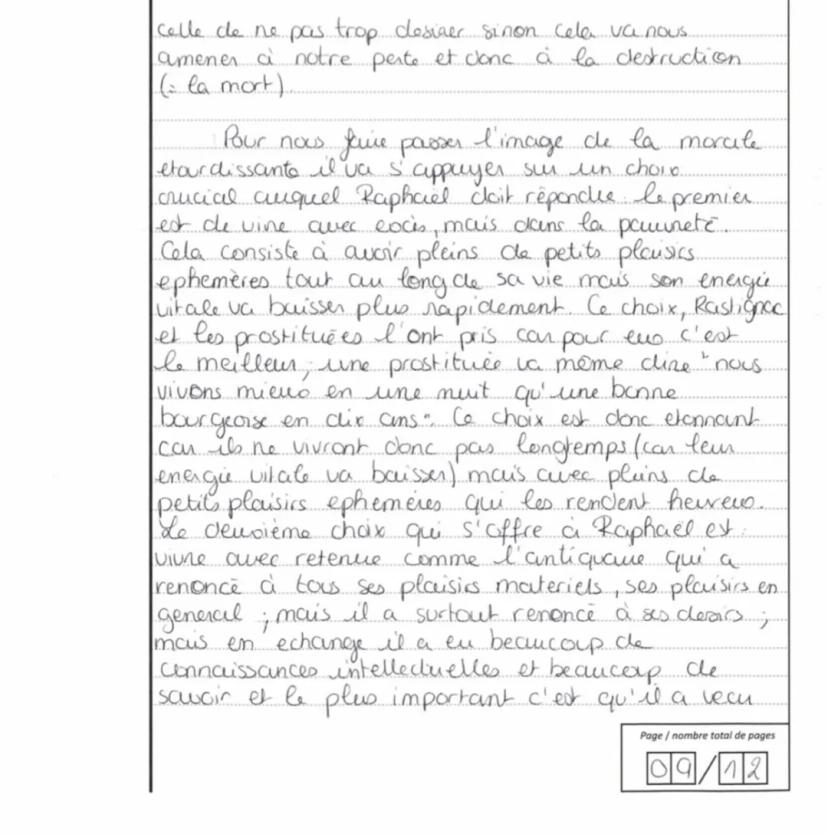 celle de ne pas trop desirer sinon cela va nous
amener à notre perte et donc à la destruction
(= la mort)
Pour nous faire passer l'image de la morale
etourdissante il va s'appuyer sur un choix
crucial auquel Raphaël doit répondre. le premier
est de vivre avec excès, mais dans la pauvreté.
Cela consiste à avoir pleins de petits plaisirs
ephemères tout au long de sa vie mais son energie
vitale va baisser plus rapidement. Ce choix, Rastignac
et les prostituées l'ont pris car pour eux c'est
le meilleur; une prostituée va même dire "nous
vivons mieux en une nuit qu'une bonne
bourgeoise en dix ans". Ce choix est donc etonnant
car ils ne vivront donc pas longtemps (car leur
energie vitale va baisser) mais avec pleins de
petits plaisirs ephemères qui les rendent heureux.
Le deuxième choix qui s'offre à Raphaël est:
vivre avec retenue comme l'antiquaire qui a
renoncé à tous ses plaisirs materiels, ses plaisirs en
general; mais il a surtout renoncé à ses desirs;
mais en echange il a eu beaucoup de
connaissances intellectuelles et beaucoup de
savoir et le plus important c'est qu'il a vecu
Page / nombre total de pages
09/12